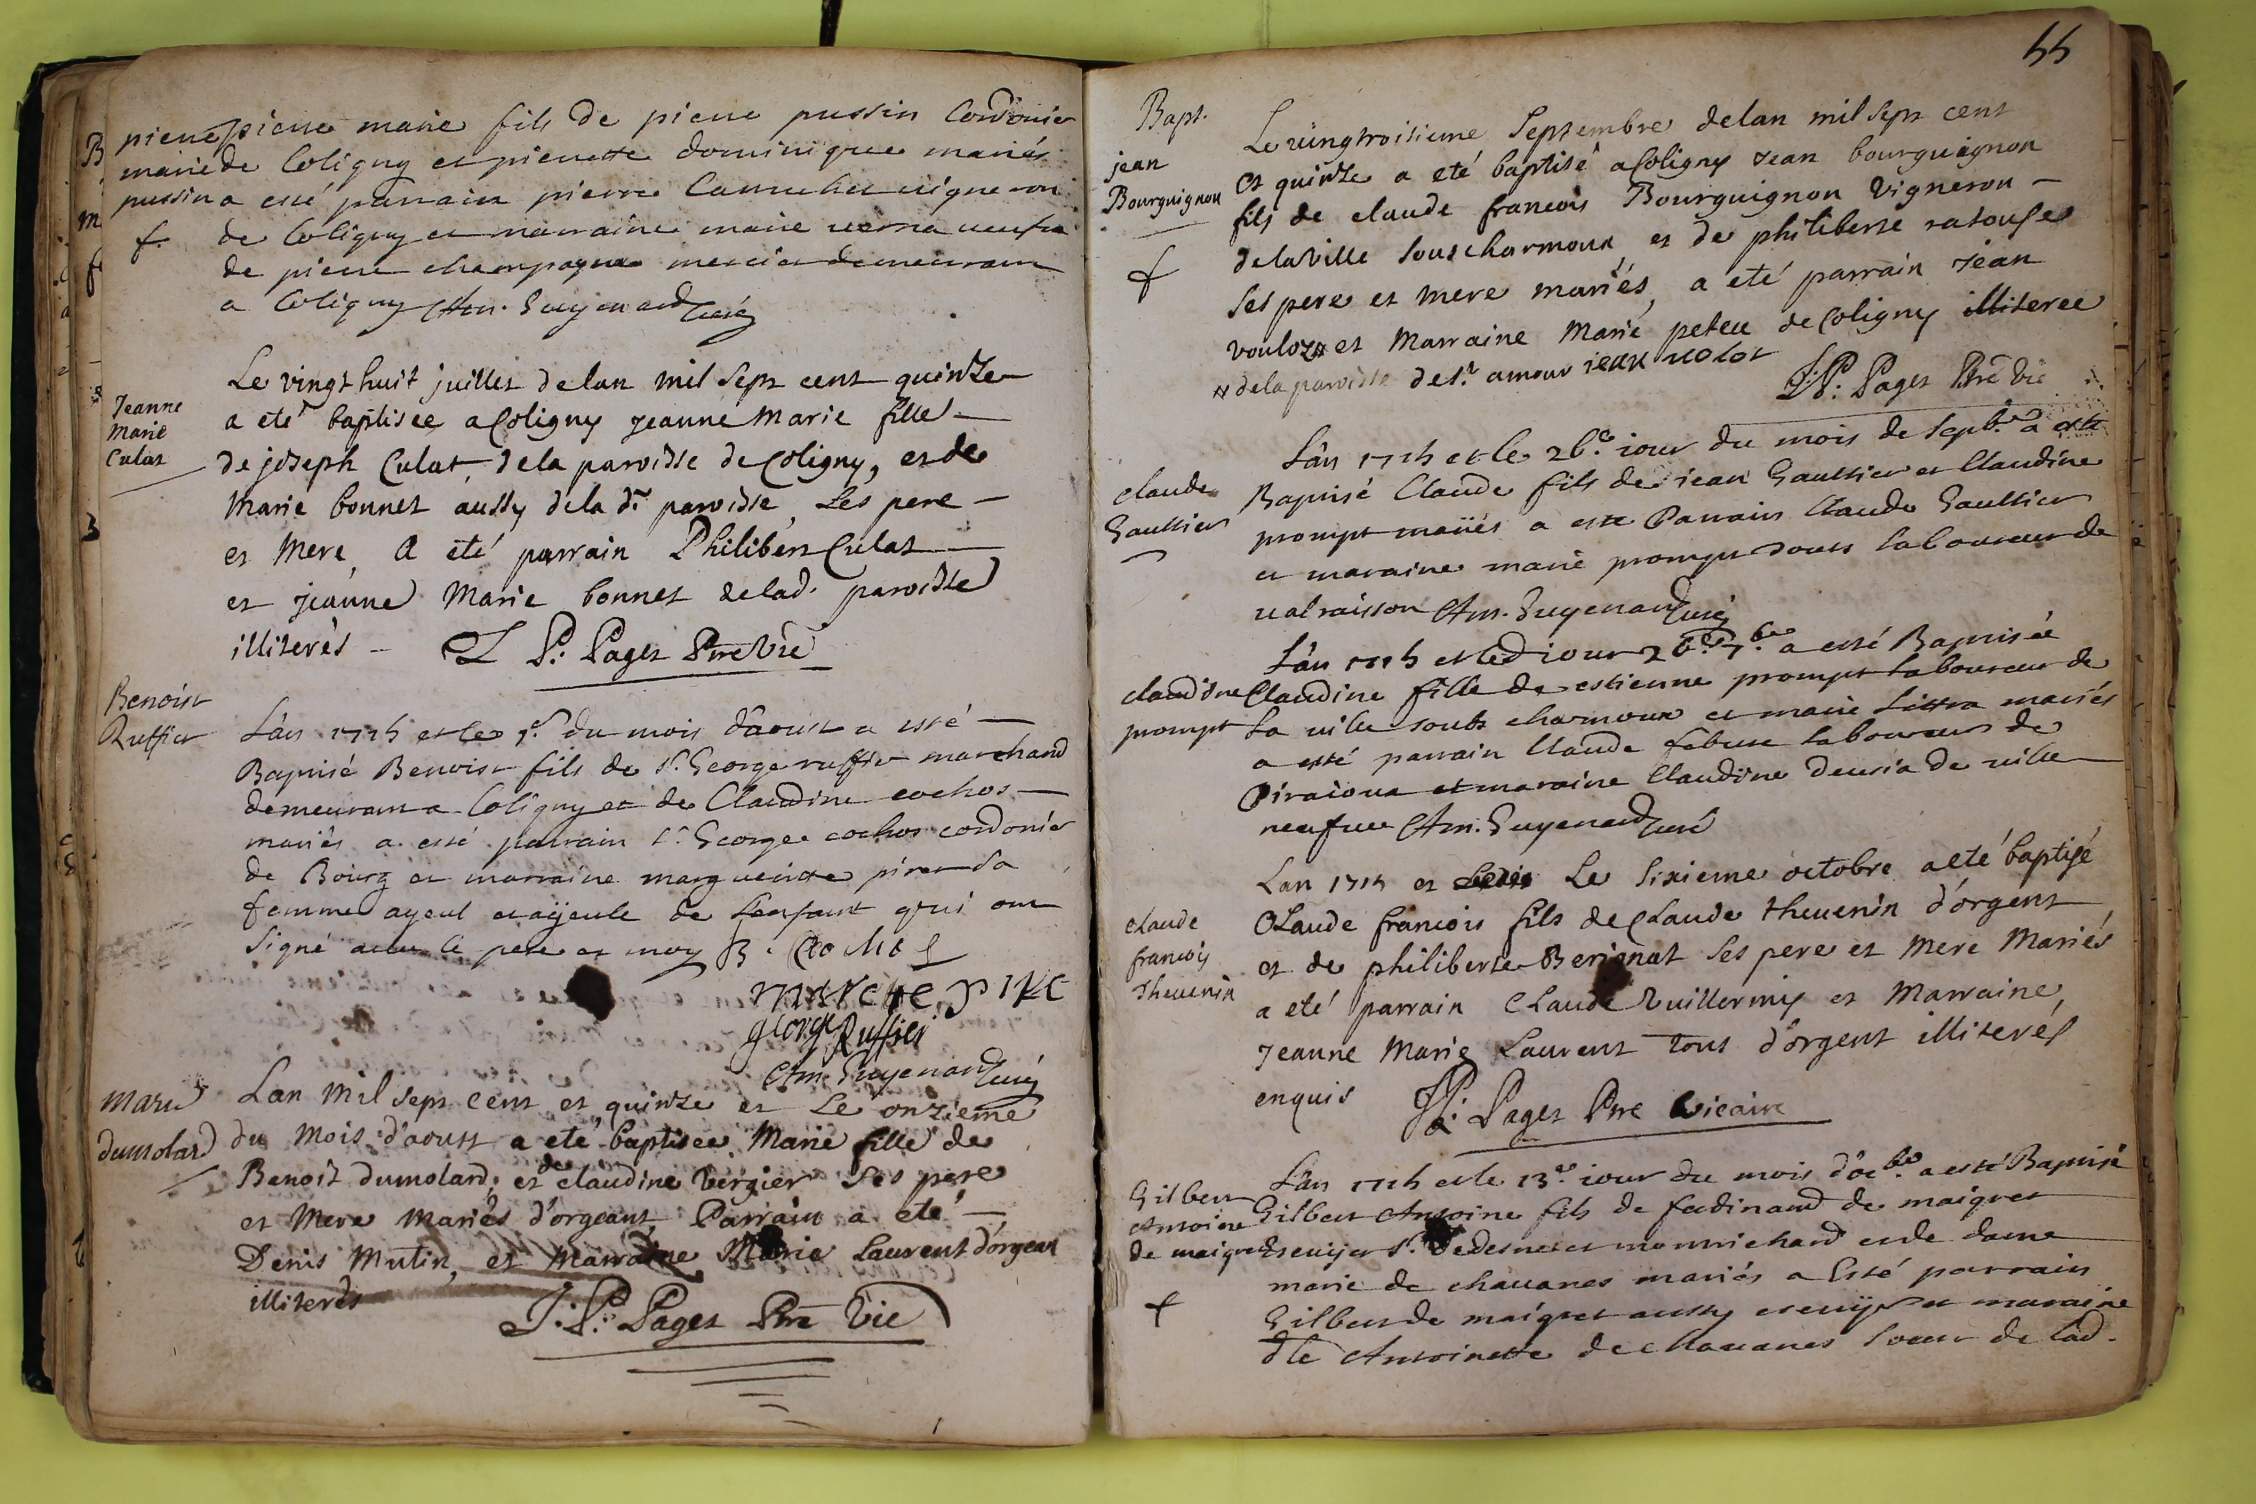 pierre pierre marie fils de pierre pussin Cordonier
marie de Coligny et pierrette dominique mariés
pussin a esté parrain pierre vigneron
f. de Coligny et marraine marie verna veufve
de pierre champagne mercier demeurant
a Coligny Am. Guyenard curé
Jeanne
Marie
Culat
Le vingt huit juillet de lan mil sept cent quinze
a eté baptisée a Coligny Jeanne Marie fille
de joseph Culat de la paroisse de Coligny, et de
Marie bonnet aussy de la dt paroisse, ses pere
et Mere, a eté parrain Philibert Culat
et jeanne Marie bonnet de lad. paroisse
illiterés J. P. Paget Ptre Vic
Benoist
Ruffier
Lân 1715 et le 5e du mois dâoust a esté
Baptisé Benoist fils de sr. George ruffier marchand
demeurant a Coligny et de Claudine cochos
mariés a esté parrain sr George cochos cordonier
de Bourg et marraine marguerite sa
femme ayeul et ayeule de Lenfant qui ont
signé avec le pere et moy
George Ruffier
Am. Guyenard curé
Marie
dumolard
Lan Mil sept cent et quinze et Le onzieme
du Mois d'aoust a eté baptisée Marie fille de
Benoit dumolard, et de claudine Vergier ses pere
et Mere Mariés d'orgeant Parrain a eté
Denis Mutin, et Marraine Marie Laurent d'orgent
illiterés
J. P. Paget Ptre Vic
55
Bapt.
jean
Bourguignon
f
Le vingtroisieme Septembre de lan mil sept cent
et quinze a eté baptisé a Coligny Jean bourguignon
fils de claude francois Bourguignon Vigneron
de la Ville sous charmoux, et de philiberte ratouset
ses pere et mere mariés, a eté parrain Jean
vouloz # et Marraine Marie peteu de Coligny illiteree
# de la paroisse de st. amour jean uolot
J. P. Paget Ptre Vic
claude
Gaultier
Lân 1715 et le 26e iour du mois de Septbre a esté
Baptisé Claude fils de iean Gaultier et Claudine
prompt mariés a esté Parrain Claude Gaultier
et maraine marie prompt touts laboureur de
ualraisson Am. Guyenard curé
claudine
prompt
Lân 1715 et led iour 26e 7bre a esté Baptisée
Claudine fille de estienne prompt laboureur de
La ville soubs charmoux et marie Littra mariés
a esté parrain Claude febure laboureur de
Piraioux et maraine Claudine deuria de ville
neufue Am. Guyenard curé
claude
francois
Thevenin
Lan 1715 et Le sixieme octobre a eté baptisé
Claude francois fils de Claude thevenin d'orgent
et de philiberte Berignat ses pere et Mere Mariés
a eté parrain Claude Vuillermis et Marraine,
Jeanne Marie Laurent tous d'orgent illiterés
enquis J. P. Paget Ptre vicaire
Gilbert
Antoine
de maigret
f
Lân 1715 et le 13e iour du mois d'8cbre a esté Baptisé
Gilbert Antoine fils de ferdinand de maigret
Escuijer sr. et monrichard et de dame
marie de chauanes mariés a Esté parrain
Gilbert de maigret aussy escuijer et maraine
dlle Antoinette de chauanes soeur de lad.